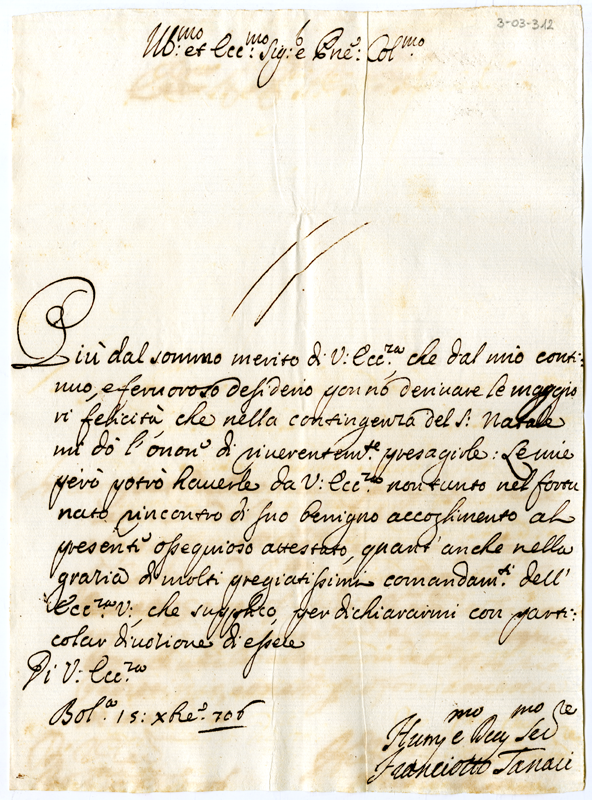 3-03-312
Ill:mo et Ecc:mo Sig:e Pne: Col:mo
Più dal sommo merito di V: Ecc:za che dal mio conti:
nuo, e feruoroso desiderio ponnò deriuare le maggio
ri felicità, che nella contingenza del S: Natale
mi dò l'onor di riuerentem:te presagirle: Le mie
però potrò hauerle da V: Ecc:za non tanto nel fortu
nato rincontro di suo benigno accoglimento al
presente ossequioso attestato, quant'anche nella
grazia di molti pregiatissimi comandam:ti dell'
Ecc:za V:, che supplico, per dichiararmi con parti:
colar diuozione di essere
Di V: Ecc:za
Bol:a 15: Xbre: 706
Hum:mo e Deu:mo Ser:re
Franciotto Tanari